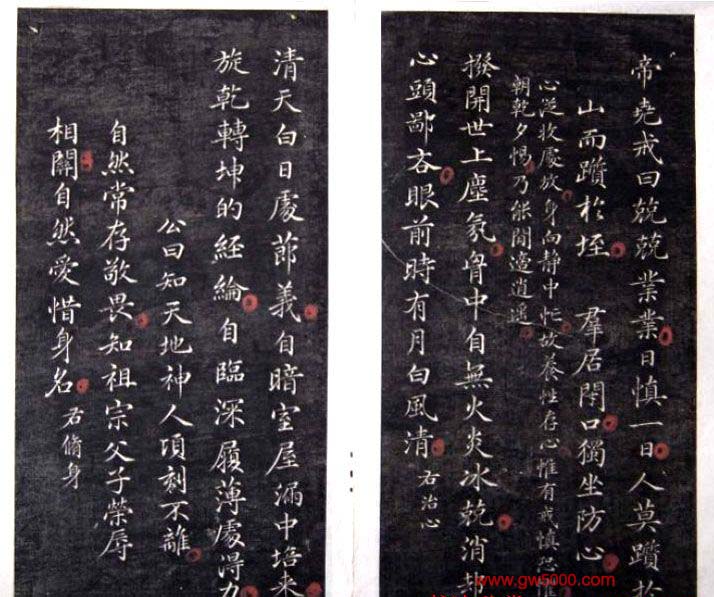 帝堯戒曰兢兢業業日慎一日人莫躓於
山而躓於垤 羣居閉口獨坐防心
心從收處放身向静中忙故養性存心惟有戒慎恐
朝乾夕惕乃能閒邉逍遥
撥開世上塵氛胷中自無火炎冰兢消却
心頭鄙吝眼前時有月白風清 右治心
清天白日處莭義自暗室屋漏中培来
旋乾轉坤的經綸自臨深履薄處得力
公曰知天地神人頃刻不離
自然常存敬畏知祖宗父子榮辱
相關自然愛惜身名 右脩身
www.gw5000.com